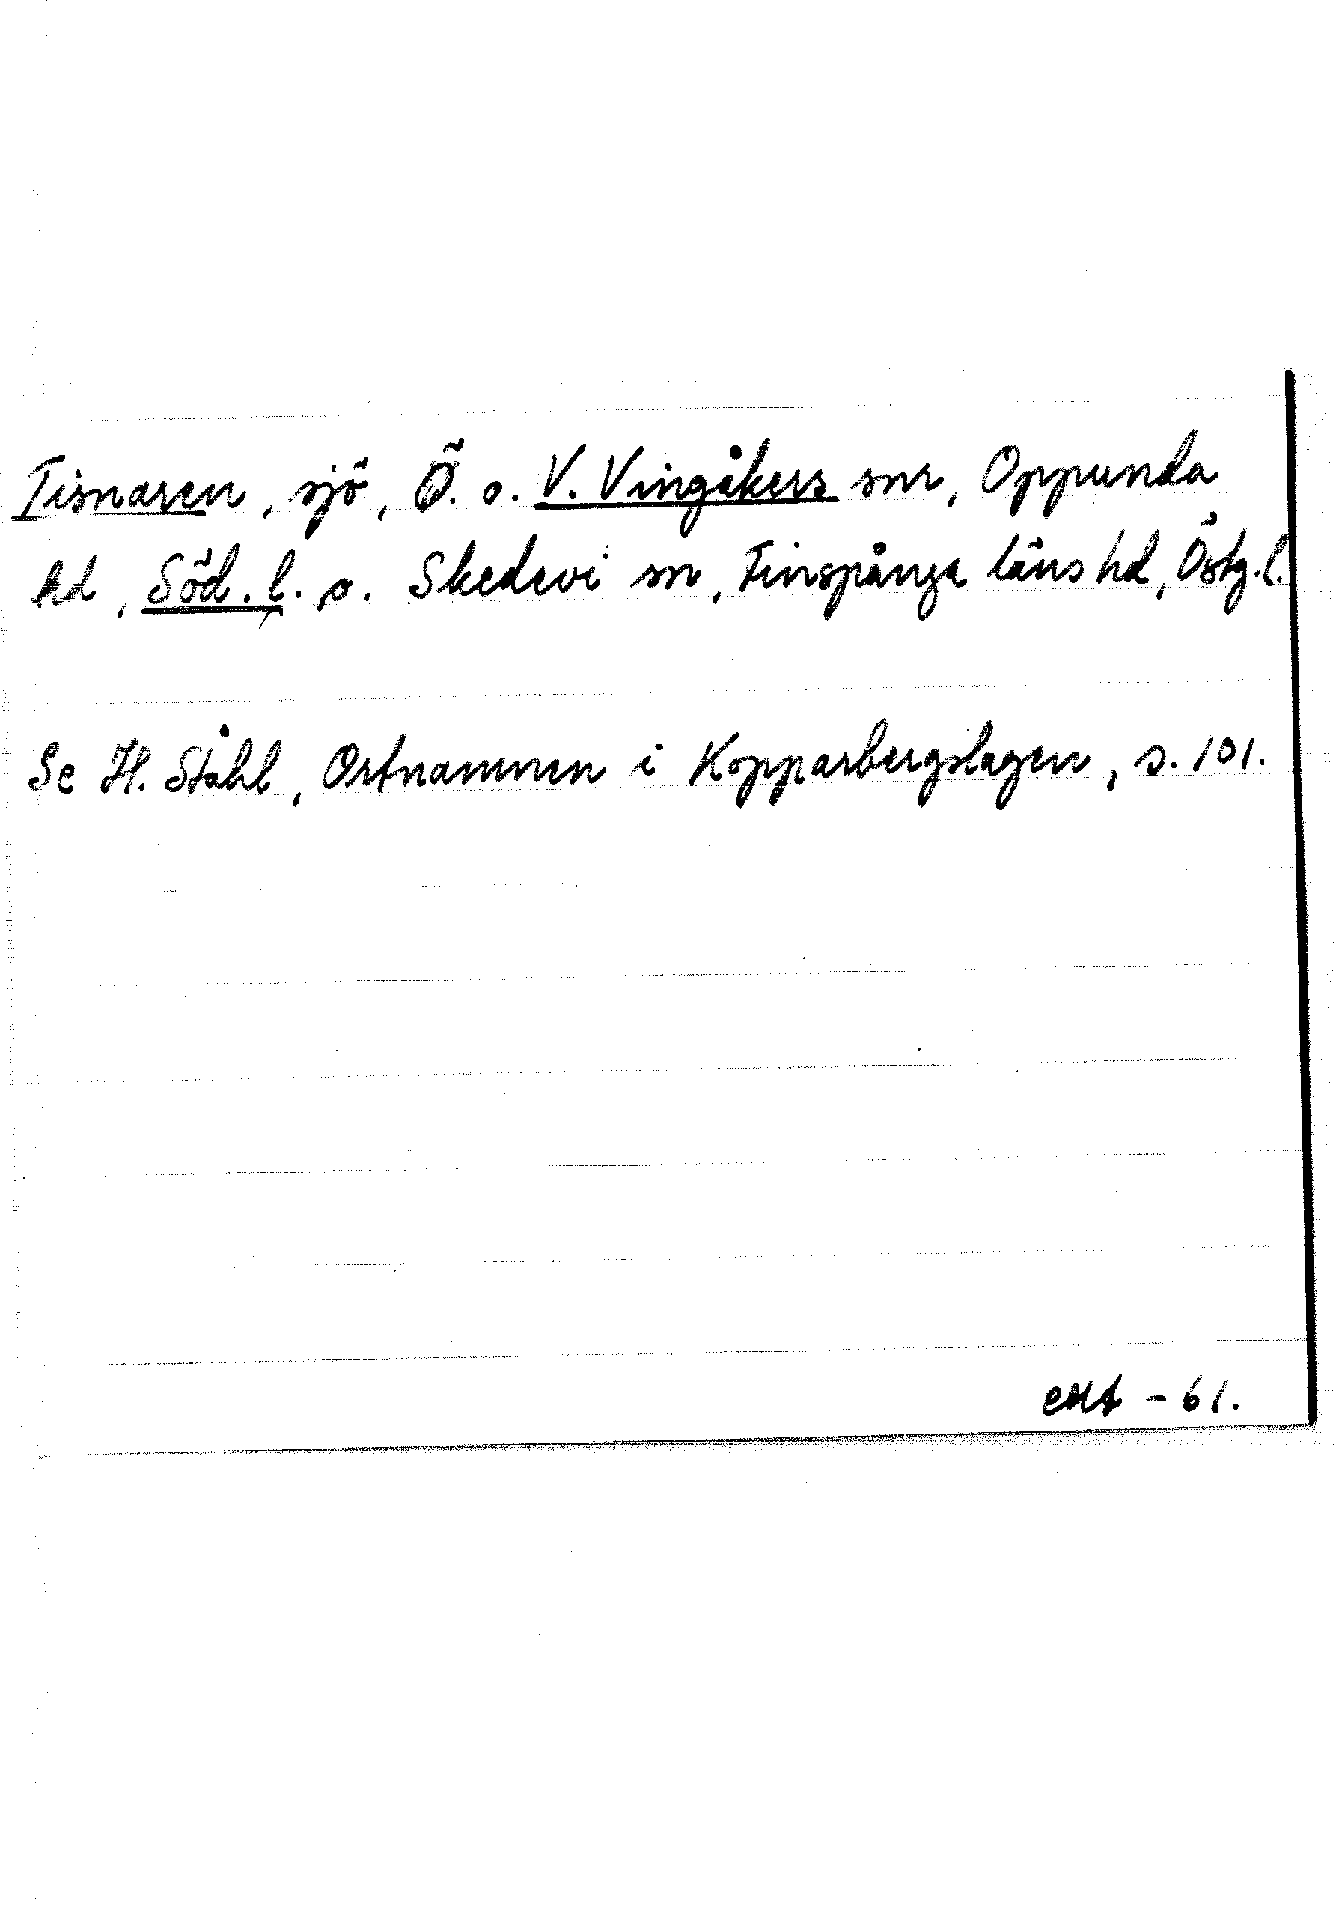 Tisnaren, sjö, Ö. o. V. Vingåkers snr, Oppunda
hd, Söd. l. o. Skedevi sn, Finspånga läns hd, Östg. l.
Se H. Ståhl, Ortnamnen i Kopparbergslagen, s. 101.
- 61.